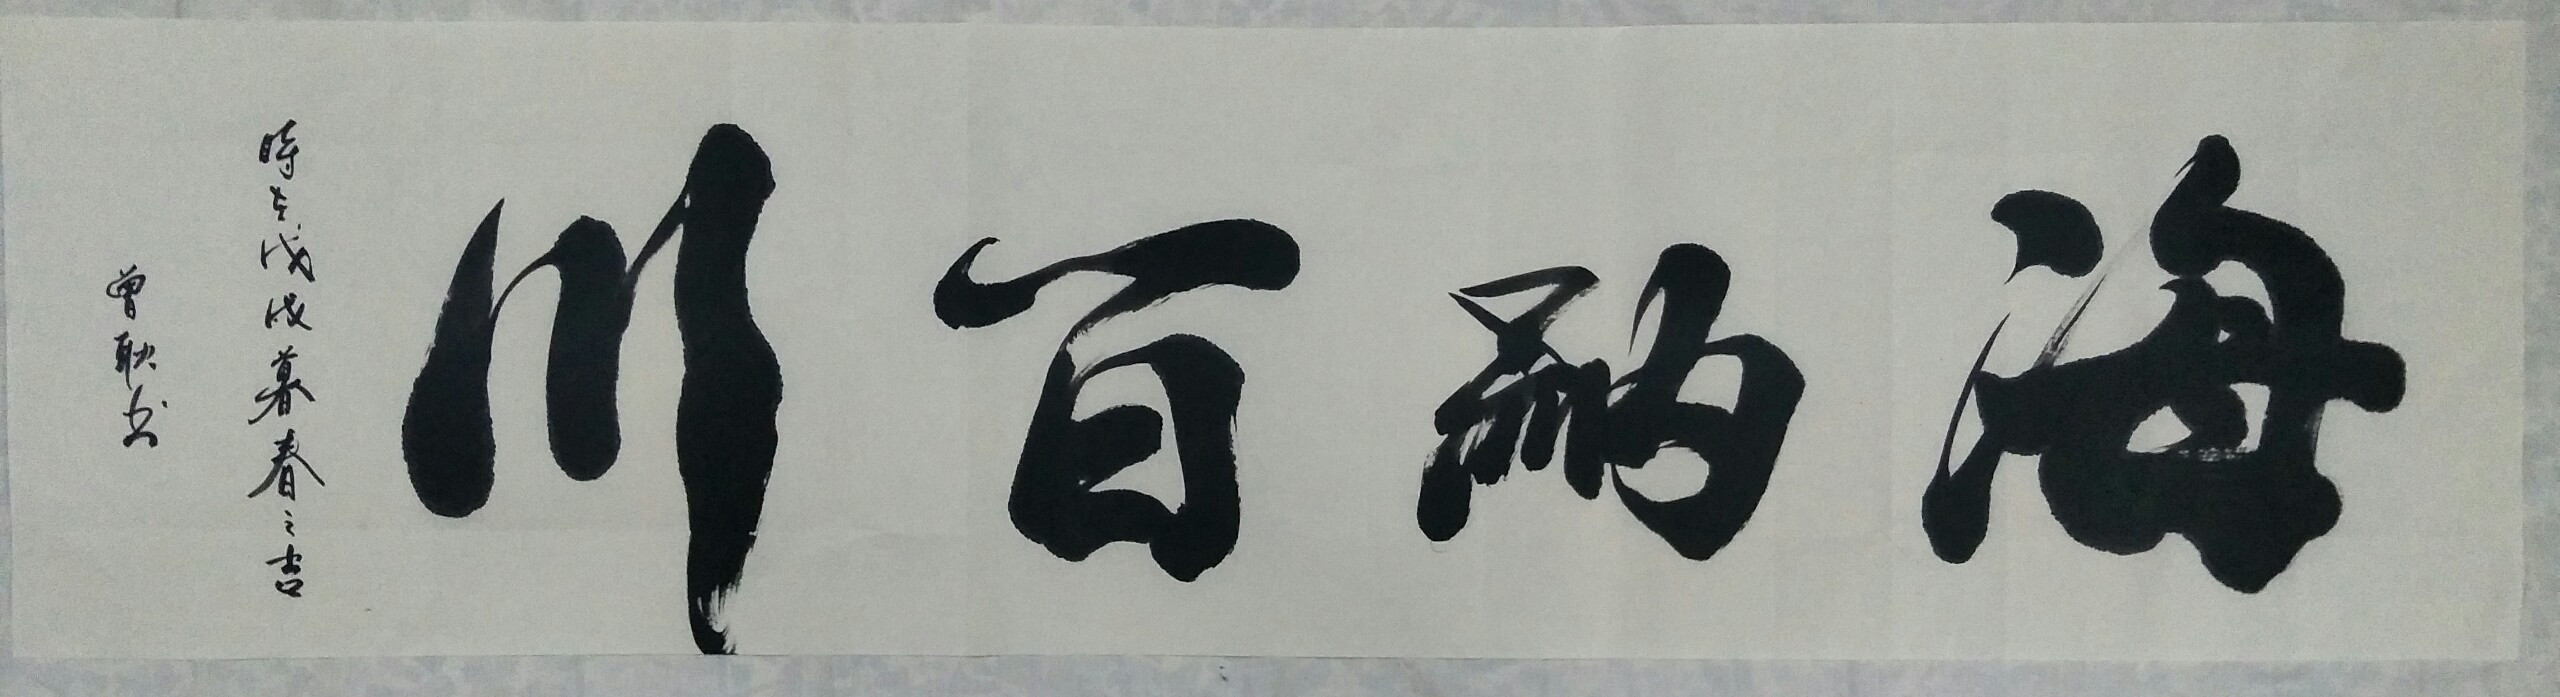 海納百川
時在戊戌暮春之吉
曾耿书